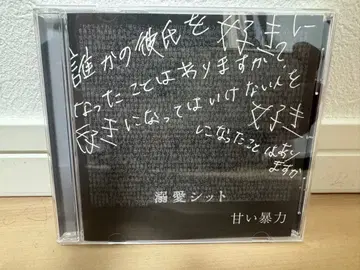 誰かの彼氏を好きに
なったことはありますか？
好きになってはいけない人を
好き
になったことはあり
ますか
溺愛シット
甘い暴力